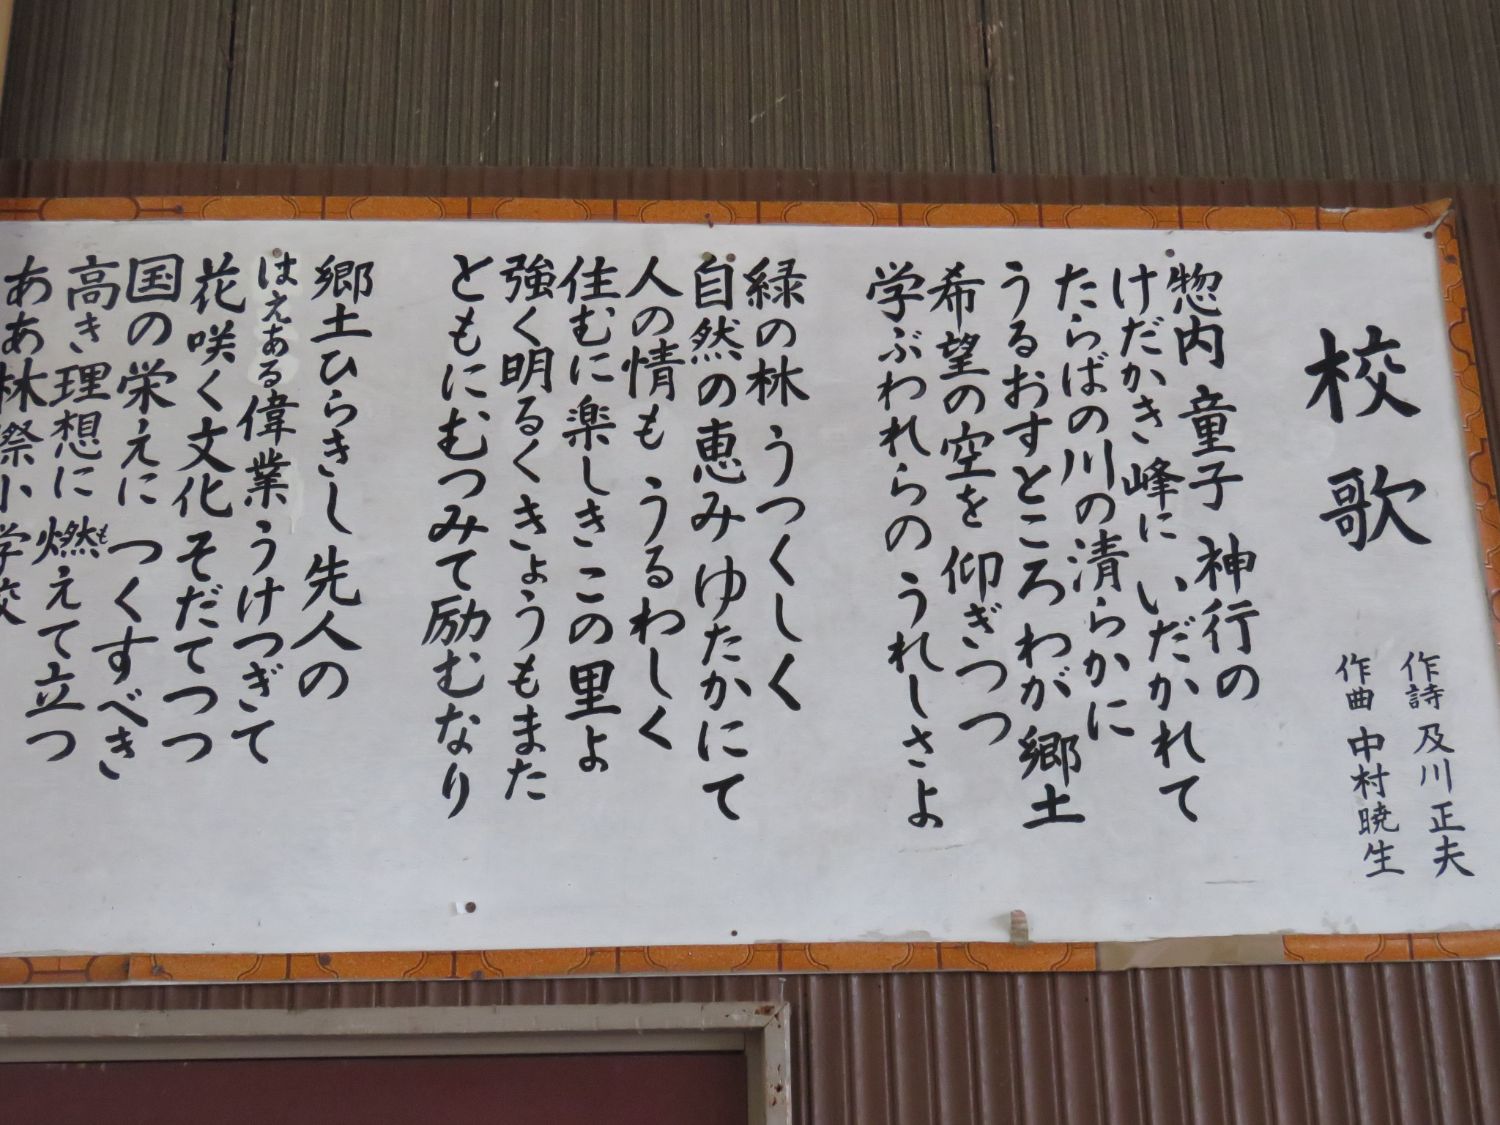 校歌
作詩 及川正夫
作曲 中村暁生
惣内 童子 神行の
けだかき峰に いだかれて
たらばの川の清らかに
うるおすところ わが郷土
希望の空を 仰ぎつつ
学ぶわれらの うれしさよ
緑の林 うつくしく
自然の恵みゆたかにて
人の情も うるわしく
住むに楽しきこの里よ
強く明るくきょうもまた
ともにむつみて励むなり
郷土ひらきし 先人の
はえある偉業 うけつぎて
花咲く文化 そだてつつ
国の栄えに つくすべき
高き理想に 燃えて立つ
も
ああ林際小学校